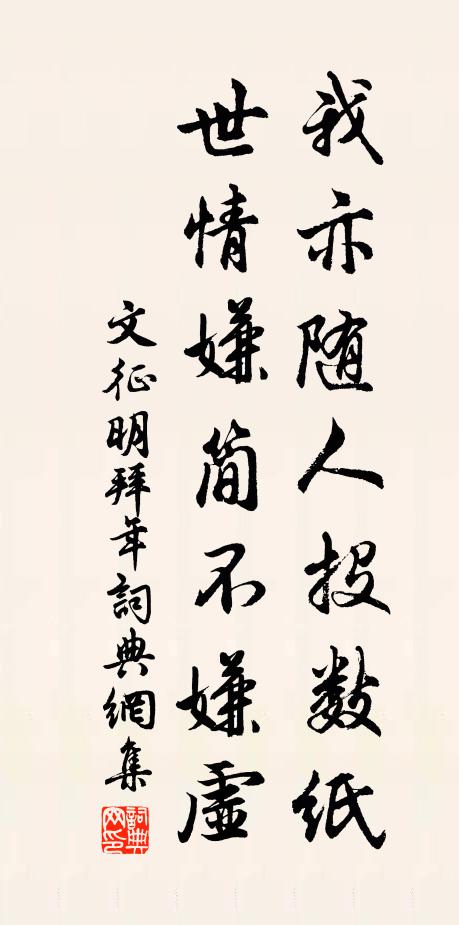 我亦随人投數紙
世情嫌简不嫌虚
文征明拜年詞典網集
詞典網印